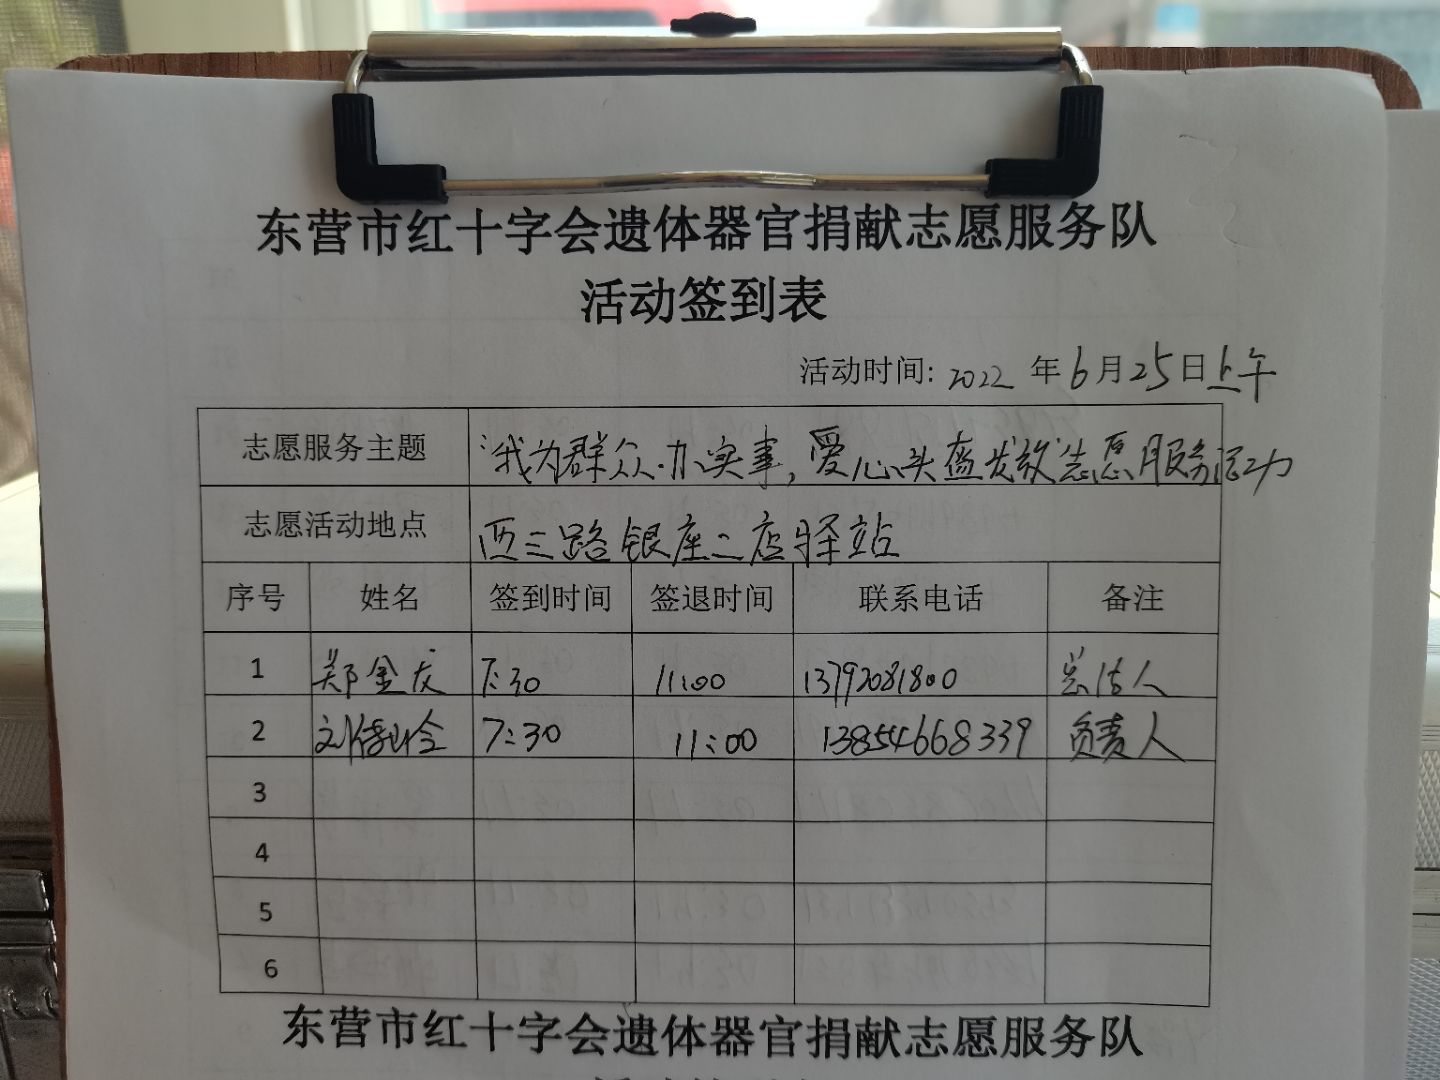 东营市红十字会遗体器官捐献志愿服务队
活动签到表
活动时间: 2022 年 6月25日上午
志愿服务主题 “我为群众办实事,爱心头盔发放”志愿服务活动
志愿活动地点 西三路银座二店驿站
序号 姓名 签到时间 签退时间 联系电话 备注
1 郑金友 7:30 11:00 13792081800 负责人
2 7:30 11:00 13854668339 负责人
3
4
5
6
东营市红十字会遗体器官捐献志愿服务队